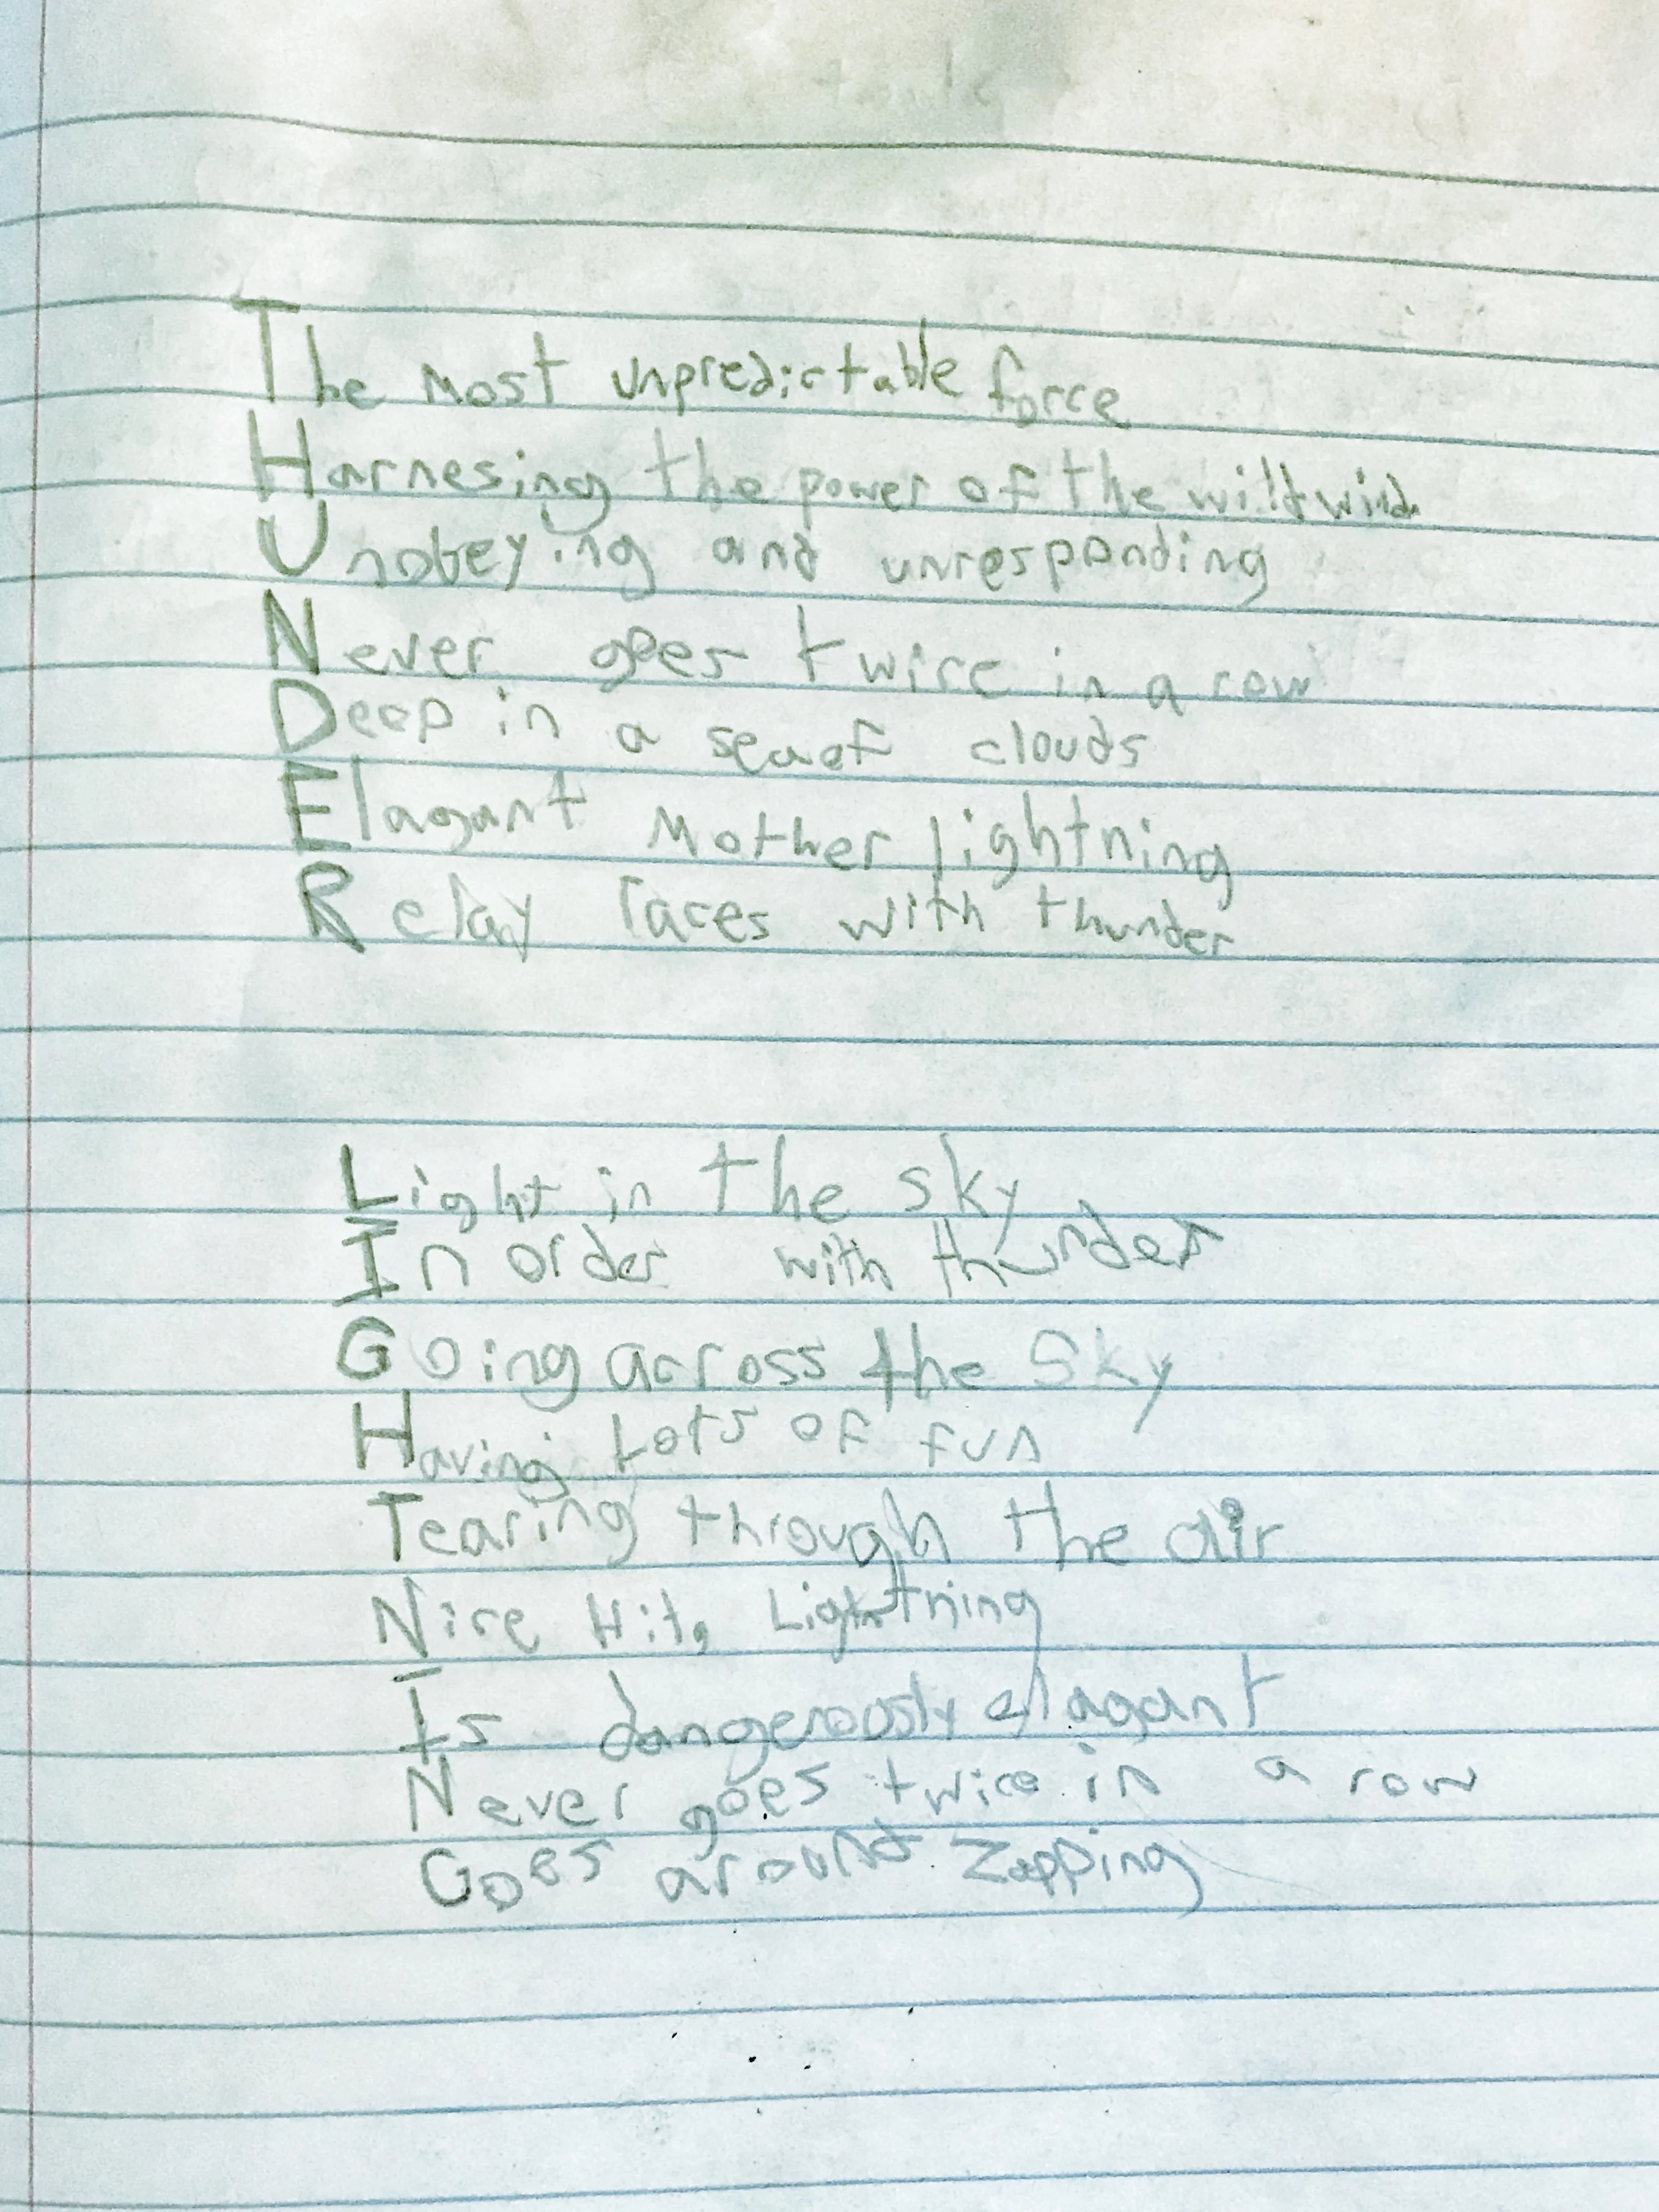 The most unpredictable force
Harnesing the power of the wild wind
Unobeying and unresponding
Never goes twice in a row
Deep in a sea of clouds
Elagant Mother lightning
Relay races with thunder
Light in the sky
In order with thunder
Going across the Sky
Having Lots of fun
Tearing through the air
Nice Hit, Lightning
Is dangerously elagant
Never goes twice in a row
Goes around Zapping